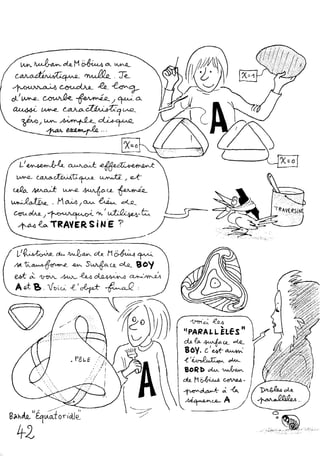 Un ruban de Möbius a une
caractéristique nulle. Je
pourrais coudre le long
d'une courbe fermée, qui a
aussi une caractéristique
zéro, un simple disque
par exemple...
χ=1
A
χ=0
χ=0
L'ensemble aurait effectivement
une caractéristique unité, et
cela serait une surface fermée
unilatère. Mais, au lieu de
coudre, pourquoi n'utilises-tu
pas la TRAVERSINE ?
TRAVERSINE
L'histoire du ruban de Möbius qui
se transforme en Surface de BOY
est à voir sur les dessins animés
A et B. Voici l'objet final :
PÔLE
Bande "Équatoriale"
A
voici les
"PARALLÈLES"
de la surface de
BOY. C'est aussi
l'évolution du
BORD du ruban
de Möbius corres-
pondant à la
séquence A
Drôles de
parallèles.
42